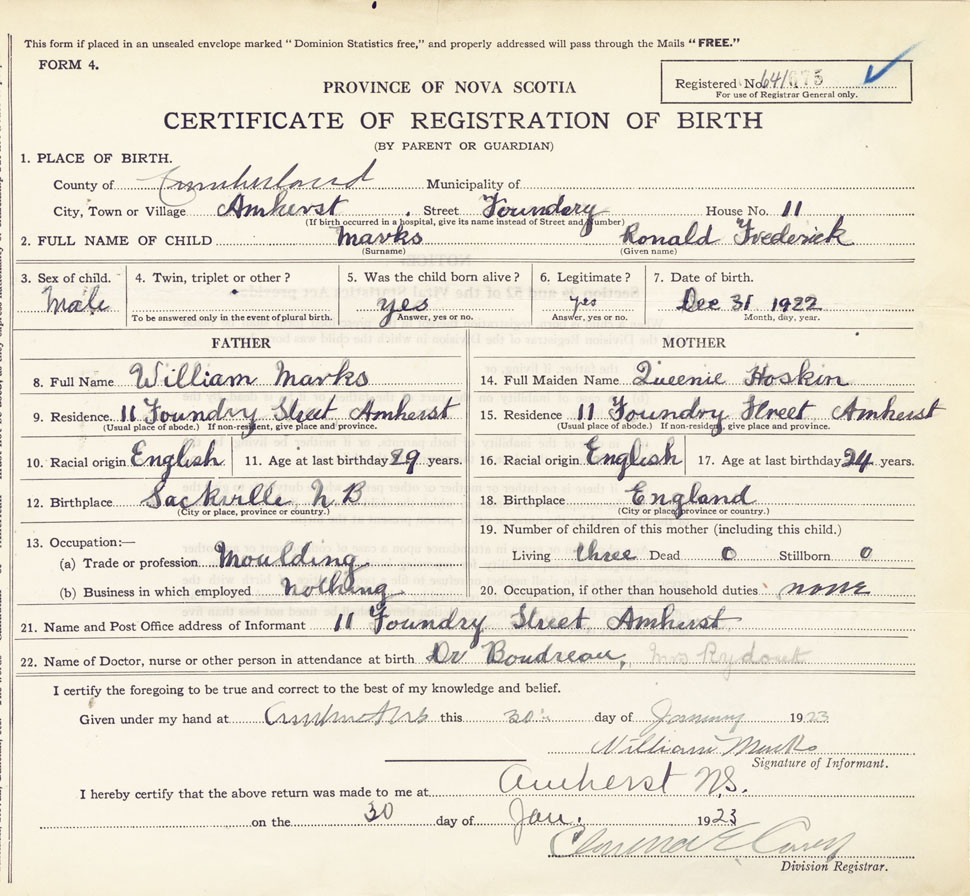 This form if placed in an unsealed envelope marked "Dominion Statistics free," and properly addressed will pass through the Mails "FREE."
FORM 4.
Registered No. 641675
For use of Registrar General only.
PROVINCE OF NOVA SCOTIA
CERTIFICATE OF REGISTRATION OF BIRTH
(BY PARENT OR GUARDIAN)
1. PLACE OF BIRTH.
County of Cumberland Municipality of
City, Town or Village Amherst Street Foundery House No. 11
(If birth occurred in a hospital, give its name instead of Street and Number)
2. FULL NAME OF CHILD Marks Ronald Frederick
(Surname) (Given name)
3. Sex of child. 4. Twin, triplet or other? 5. Was the child born alive? 6. Legitimate? 7. Date of birth.
Male yes yes Dec 31 1922
To be answered only in the event of plural birth. Answer, yes or no. Answer, yes or no. Month, day, year.
FATHER MOTHER
8. Full Name William Marks 14. Full Maiden Name Queenie Hoskin
9. Residence. 11 Foundry Street Amherst 15. Residence 11 Foundry Street Amherst
(Usual place of abode.) If non-resident, give place and province. (Usual place of abode.) If non-resident, give place and province.
10. Racial origin English 11. Age at last birthday 29 years. 16. Racial origin English 17. Age at last birthday 24 years.
12. Birthplace Sackville N B 18. Birthplace England
(City or place, province or country.) (City or place, province or country.)
13. Occupation:— 19. Number of children of this mother (including this child.)
(a) Trade or profession Moulding Living three Dead 0 Stillborn 0
(b) Business in which employed nothing 20. Occupation, if other than household duties none
21. Name and Post Office address of Informant 11 Foundry Street, Amherst
22. Name of Doctor, nurse or other person in attendance at birth Dr Boudreau, Mrs Rydout
I certify the foregoing to be true and correct to the best of my knowledge and belief.
Given under my hand at this 30 day of January 1923
William Marks
Signature of Informant.
I hereby certify that the above return was made to me at Amherst N.S.
on the 30 day of Jan. 1923
Division Registrar.